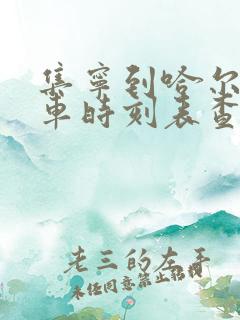 集宁到哈尔
车时刻表查
老三的左手
未经同意禁止招搜